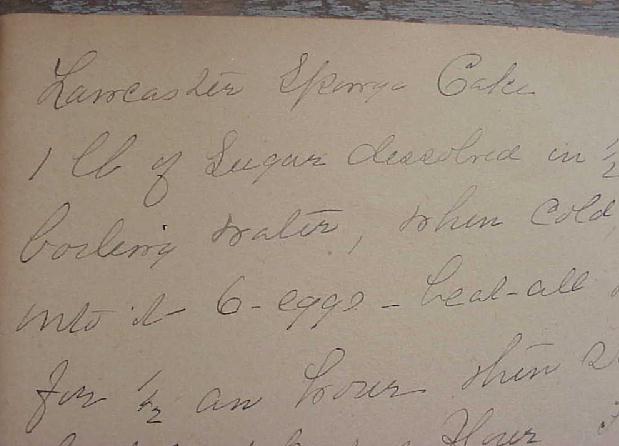 Lancaster Sponge Cake
1 lb of Sugar dissolved in 1/2
boiling water, when cold,
into it 6 - eggs - beat - all
for 1/2 an hour then
Flour